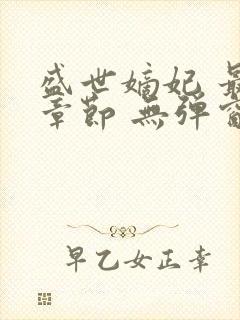 盛世嫡妃 最
章節 無彈窗
早乙女正幸